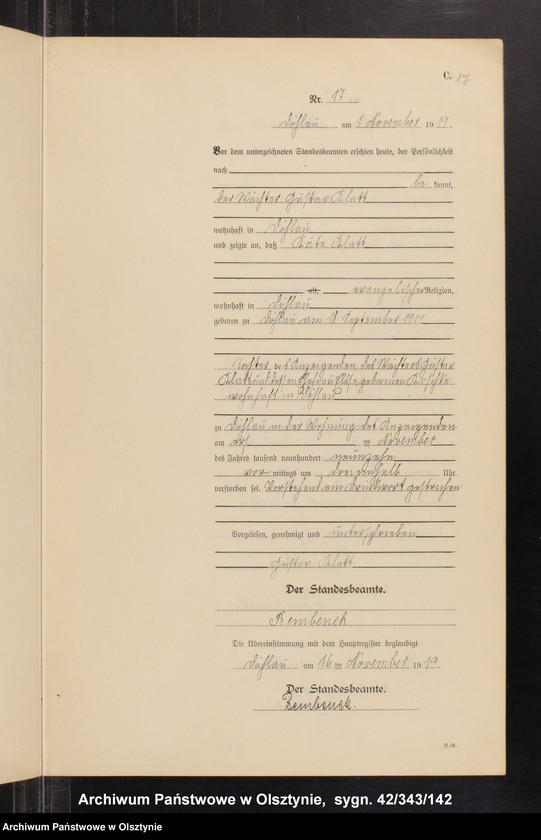 C. 17
Nr. 17
Döhlau am 1 November 1919.
Vor dem unterzeichneten Standesbeamten erschien heute, der Persönlichkeit
nach
be kannt,
der Wächter Gustav Klatt
wohnhaft in Döhlau
und zeigte an, daß Käte Klatt
alt, evangelischer Religion,
wohnhaft in Döhlau
geboren zu Döhlau am 18 September
Tochter des Anzeigenden, des Wächters Gustav
Klatt und dessen Ehefrau Elise geborenen
wohnhaft in Döhlau
zu Döhlau in der Wohnung des Anzeigenden
am ersten November
des Jahres tausend neunhundert neunzehn
vor mittags um dreieinhalb Uhr
verstorben sei. Vorstehend ein Druckwort gestrichen
Vorgelesen, genehmigt und unterschrieben
Gustav Klatt
Der Standesbeamte.
Rembenek
Die Übereinstimmung mit dem Hauptregister beglaubigt
Döhlau am 16 ten November 1919.
Der Standesbeamte.
Rembenek.
Archiwum Państwowe w Olsztynie, sygn. 42/343/142
Archiwum Państwowe w Olsztynie